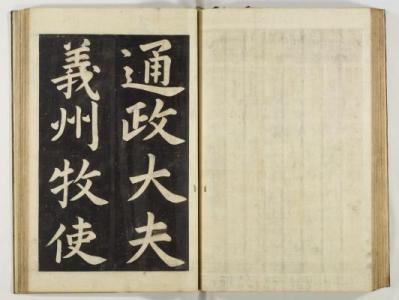 通政大夫
義州牧使